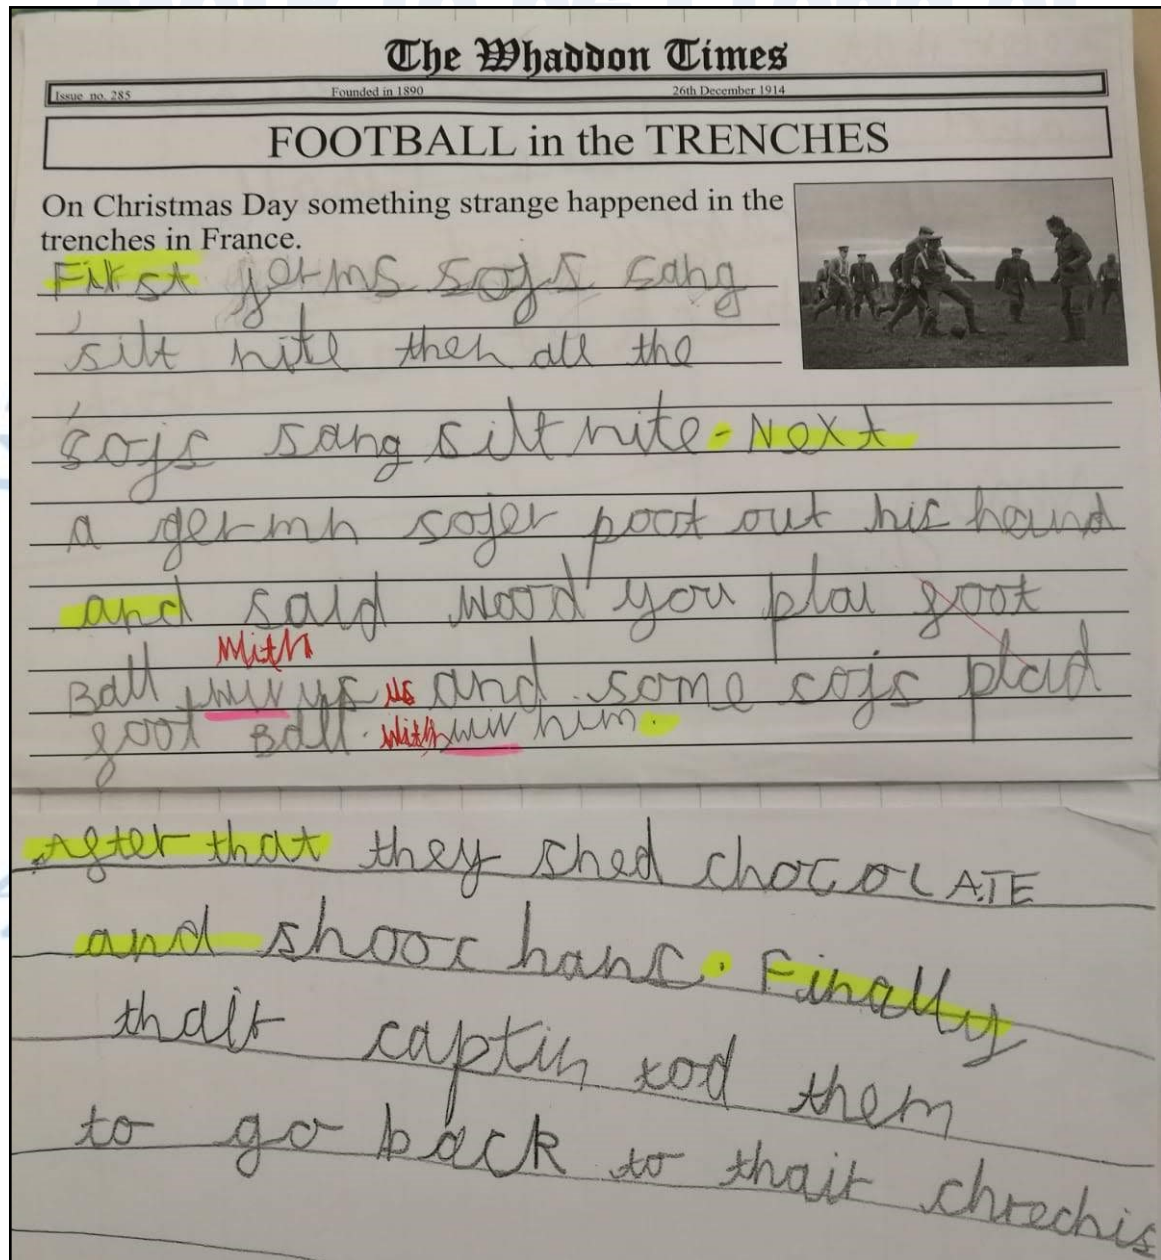 The Whaddon Times
Issue no. 285 Founded in 1890 26th December 1914
FOOTBALL in the TRENCHES
On Christmas Day something strange happened in the
trenches in France.
First germs sojs sang
silt nite then all the
sojs sang silt nite. Next
a germn sojer poot out his hand
and said wood you plai foot
With
Ball wiv us us and some sojs plaid
foot Ball. with wiv him.
After that they shed chocolATE
and shooc hans. Finally
thair captin tod them
to go back to thair chrechis